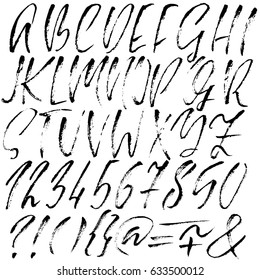 ABCDEFGHI
JKLMNOPQR
STUVWXYZ
1234567890
?!(){}@=+&
shutterstock.com · 633500012